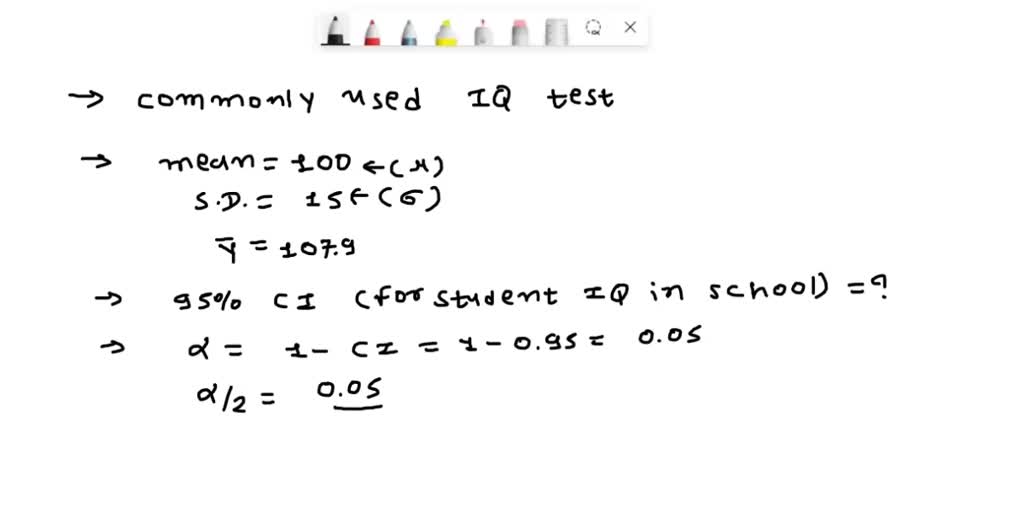 → commonly used IQ test
→ mean = 100 ← (μ)
S.D. = 15 ← (σ)
ȳ = 107.9
→ 95% CI (for student IQ in school) = ?
→ α = 1 - CI = 1 - 0.95 = 0.05
α/2 = 0.05